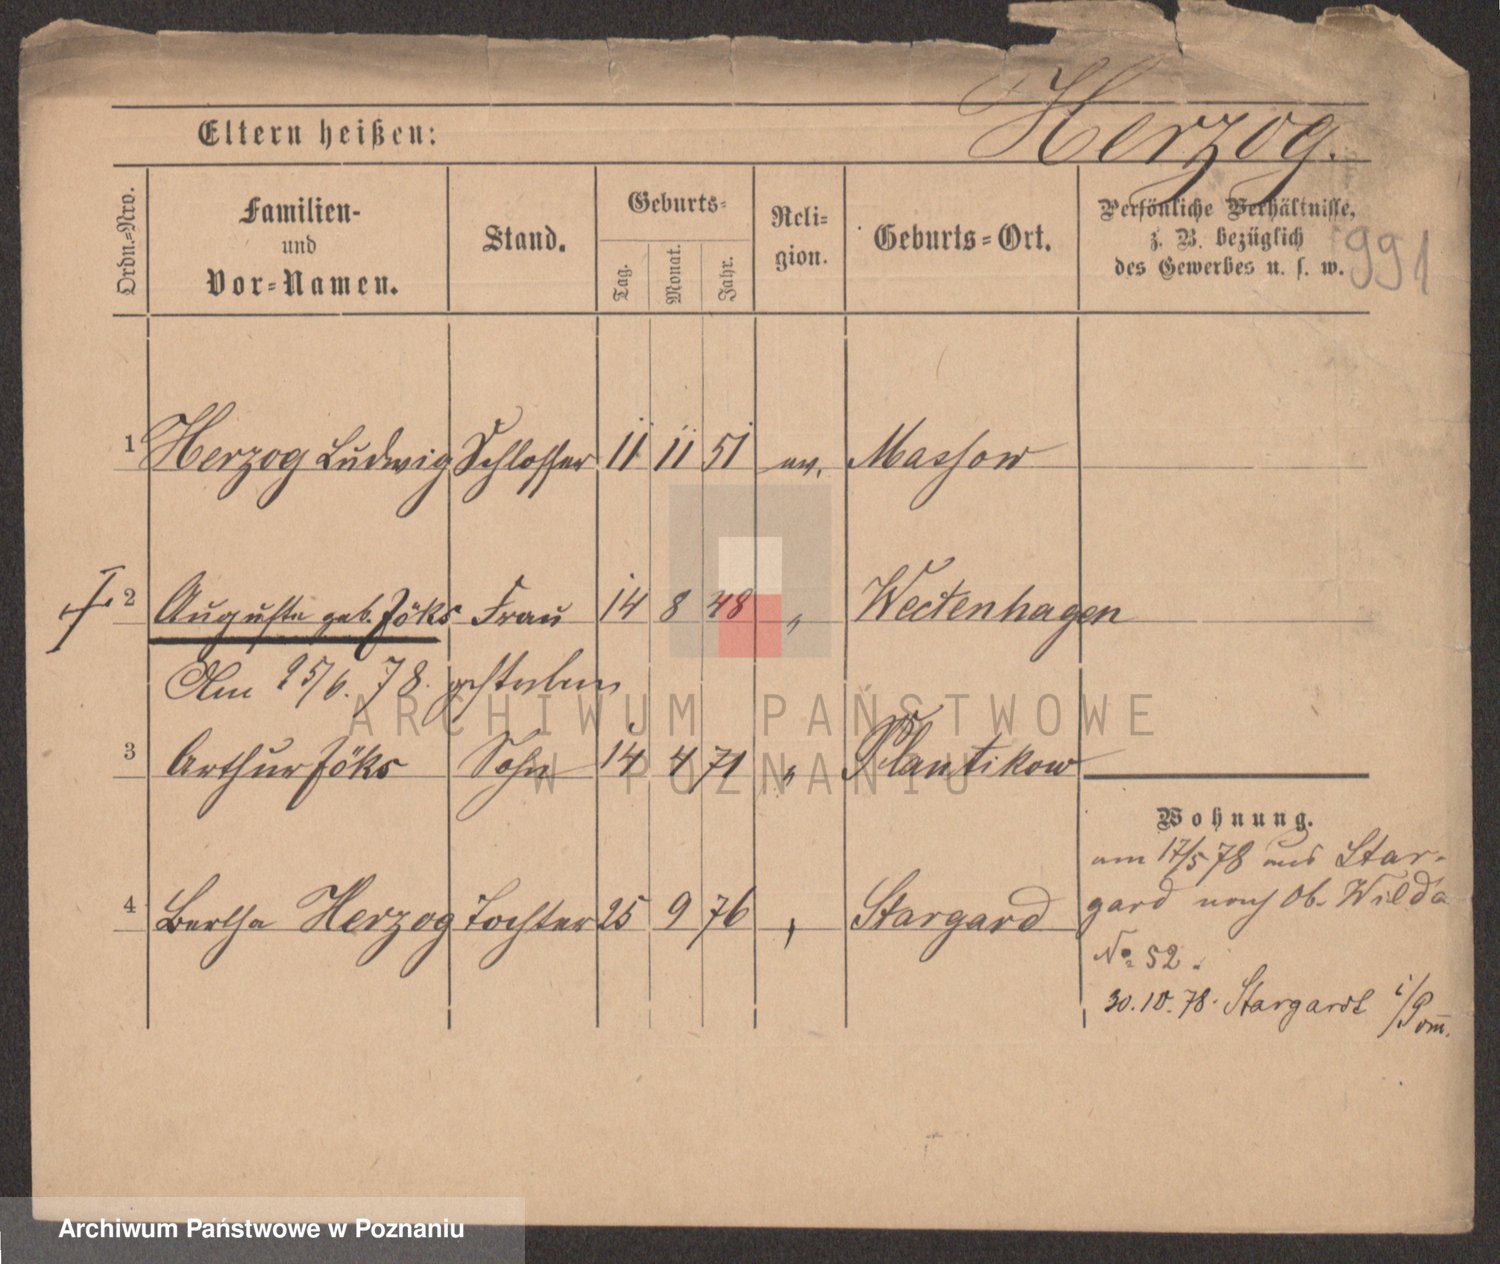 Herzog.
Eltern heißen:
Ordn.=Nro.
Familien-
und
Vor=Namen.
Stand.
Geburts=
Tag.
Monat.
Jahr.
Reli=
gion.
Geburts=Ort.
Persönliche Verhältnisse,
z. B. bezüglich
des Gewerbes u. s. w.
991
1 Herzog Ludwig Schlosser 11 11 51 ev. Massow
2 Auguste geb. Jöks Frau 14 8 48 " Wectenhagen
Am 25/6. 78. gestorben
3 Arthur Jöks Sohn 14 4 71 " Plantikow
4 Bertha Herzog Tochter 25 9 76 " Stargard
Wohnung.
am 17/5 78 aus Star-
gard nach Ob. Wilda
No 52.
30.10.78. Stargardt i/Pom.
ARCHIWUM PAŃSTWOWE
W POZNANIU
Archiwum Państwowe w Poznaniu